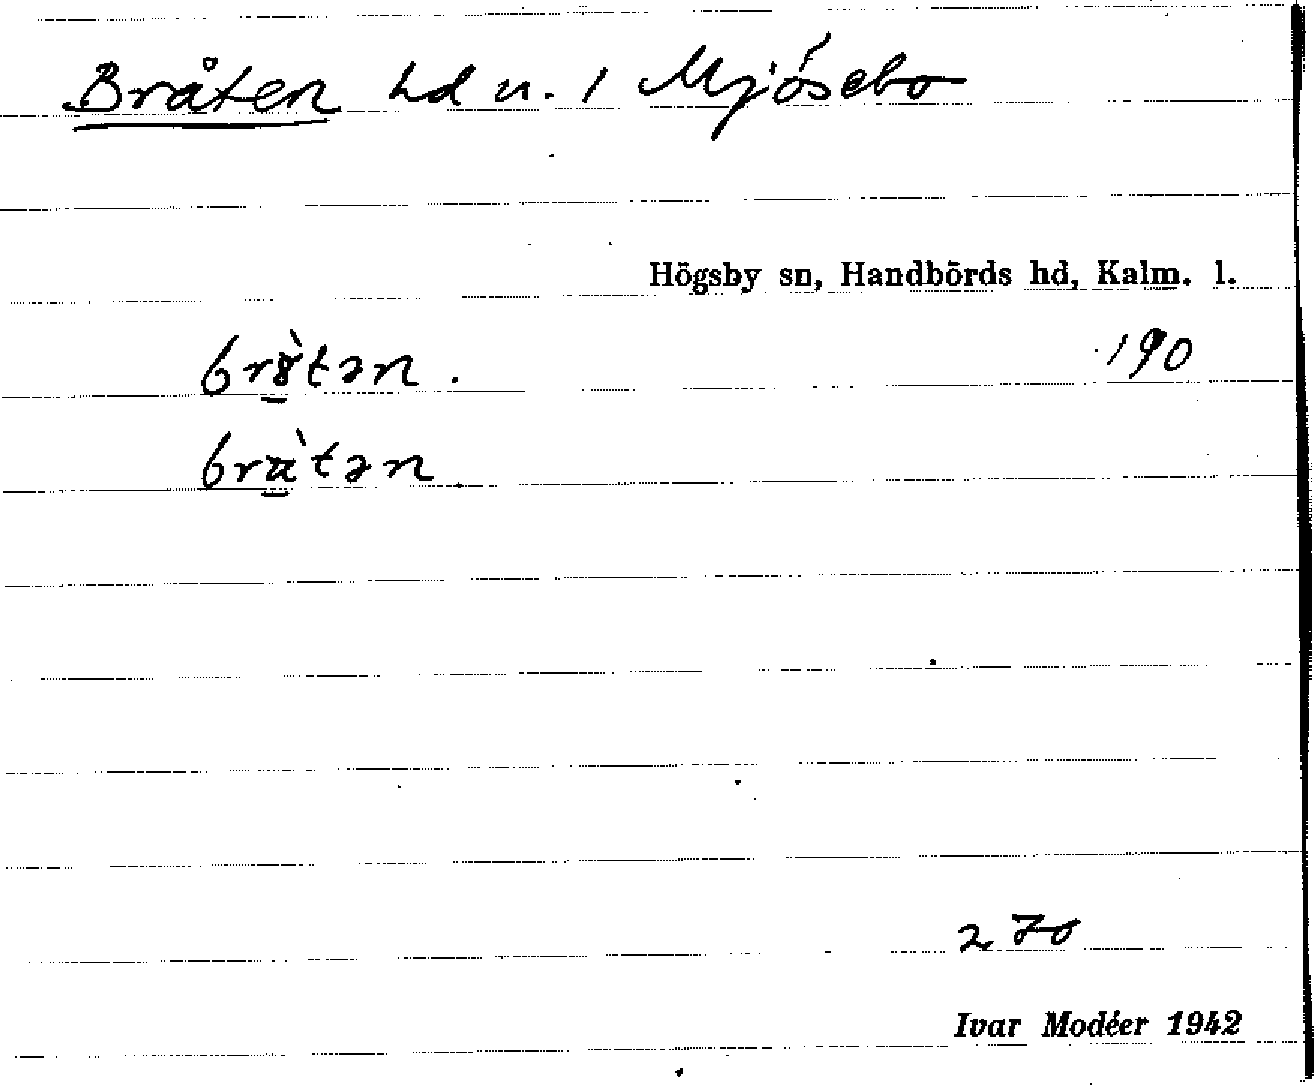 Bråten hd n. 1 Mjösebo
Högsby sn, Handbörds hd, Kalm. l.
190
270
Ivar Modéer 1942